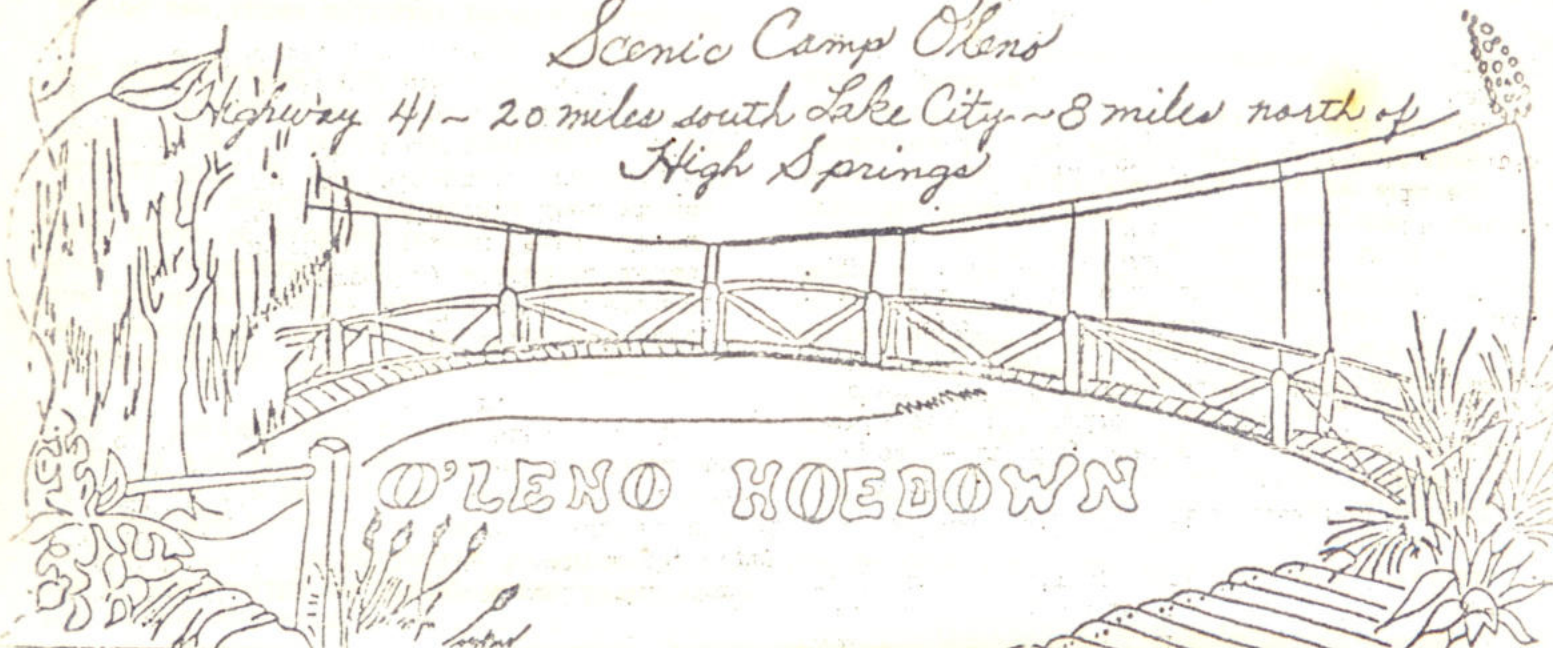 Scenic Camp O'Leno
Highway 41 ~ 20 miles south Lake City ~ 8 miles north of
High Springs
O'LENO HOEDOWN